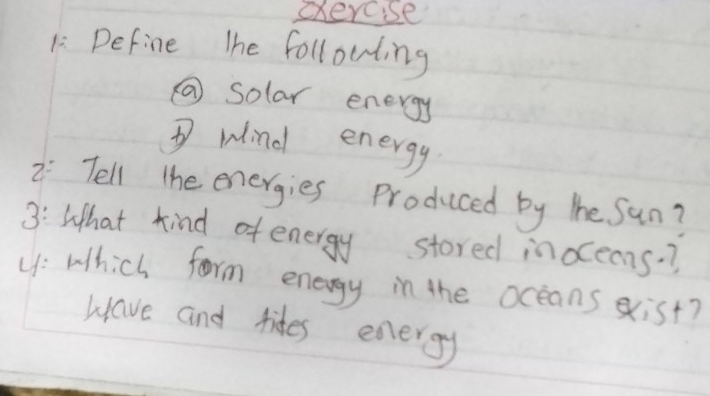 Exercise
1: Define the following
(a) Solar energy
(b) Wind energy.
2: Tell the energies Produced by the Sun?
3: What kind of energy stored in oceans?
4: Which form energy in the oceans exist?
Wave and tides energy